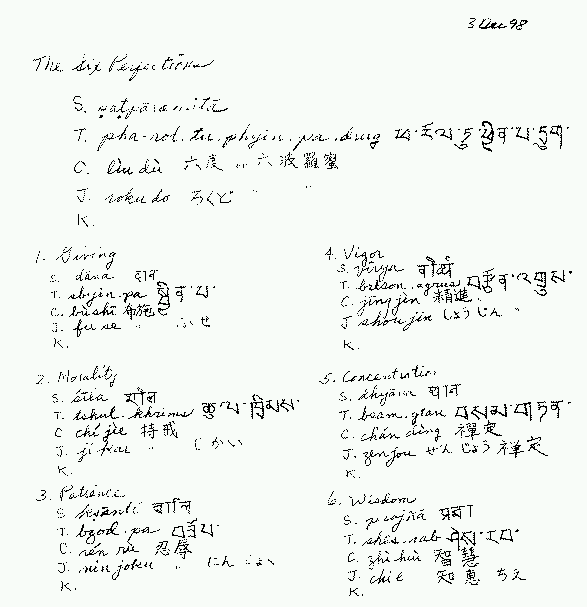 3 Dec 98
The Six Perfections
S. ṣaṭpāramitā
T. pha-rol.tu.phyin.pa.drug ཕ་རོལ་ཏུ་ཕྱིན་པ་དྲུག
C. liù dù 六度 or 六波羅蜜
J. rokudo ろくど " "
K.
1. Giving
S. dāna दान
T. sbyin.pa སྦྱིན་པ་
C. bùshī 布施
J. fuse " ふせ
K.
2. Morality
S. śīla शील
T. tshul.khrims ཚུལ་ཁྲིམས་
C. chí jiè 持戒
J. jikai " じかい
K.
3. Patience
S. kṣānti
T. bzod.pa བཟོད་པ་
C. rěn rù 忍辱
J. nin joku "
K.
4. Vigor
S. vīrya वीर्य
T. brtson.'grus བརྩོན་འགྲུས་
C. jīng jìn 精進
J. shoujin しょうじん "
K.
5. Concentration
S. dhyāna
T. bsam.gtan བསམ་གཏན་
C. chán dìng 禪定
J. zenjou ぜんじょう 禅定
K.
6. Wisdom
S. prajñā
T. shes.rab ཤེས་རབ་
C. zhì huì 智慧
J. chie 知恵 ちえ
K.